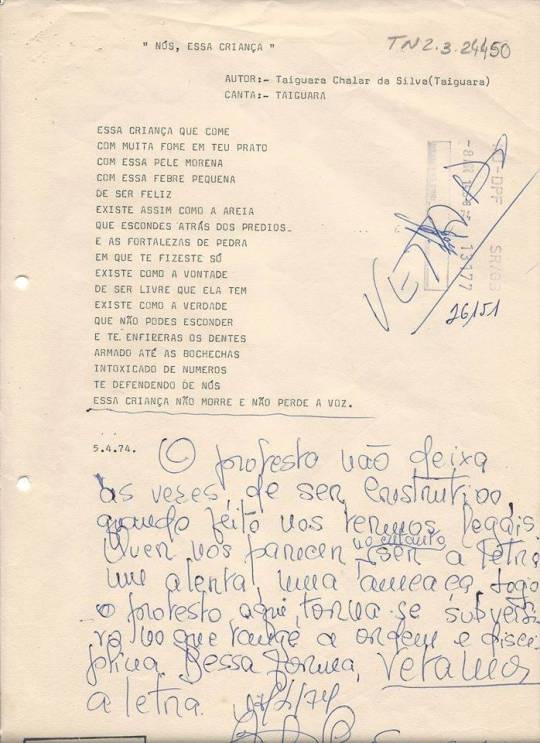 " NÓS, ESSA CRIANÇA "
TN2.3.24450
AUTOR:- Taiguara Chalar da Silva(Taiguara)
CANTA:- TAIGUARA
ESSA CRIANÇA QUE COME
COM MUITA FOME EM TEU PRATO
COM ESSA PELE MORENA
COM ESSA FEBRE PEQUENA
DE SER FELIZ
EXISTE ASSIM COMO A AREIA
QUE ESCONDES ATRÁS DOS PREDIOS
E AS FORTALEZAS DE PEDRA
EM QUE TE FIZESTE SÓ
EXISTE COMO A VONTADE
DE SER LIVRE QUE ELA TEM
EXISTE COMO A VERDADE
QUE NÃO PODES ESCONDER
E TE ENFIEERAS OS DENTES
ARMADO ATÉ AS BOCHECHAS
INTOXICADO DE NUMEROS
TE DEFENDENDO DE NÓS
ESSA CRIANÇA NÃO MORRE E NÃO PERDE A VOZ.
VETADO
-DPF SR/GB
13177
26151
5.4.74. O protesto não deixa
às vezes, de ser construtivo
quando feito nos termos legais.
Quer nos parecer, no entanto, ser a letra
um alerta, uma ameaça, logo
o protesto aqui, torna-se subversi
vo no que tange a ordem e disci
plina. Dessa forma, vetamos
a letra.